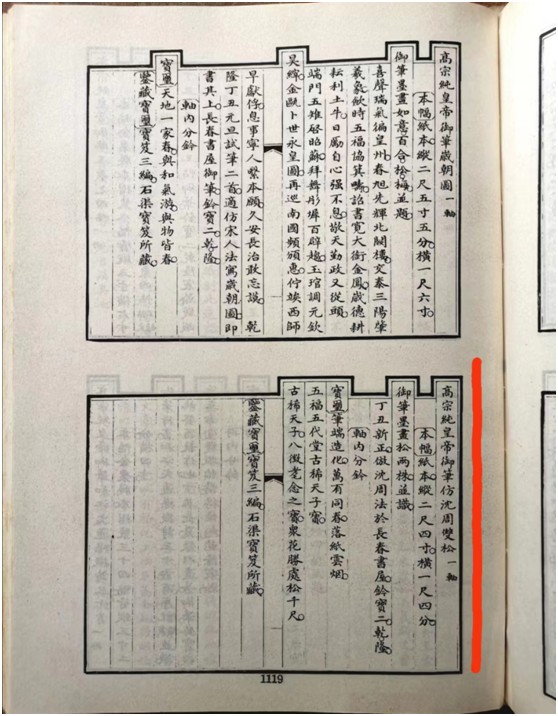 高宗純皇帝御筆歲朝圖一軸
本幅紙本縱二尺五寸五分橫一尺六寸
御筆墨畫如意百合松梅並題
喜聲瑞氣徧皇州春旭先輝北闕樓文泰三陽肇
羲象欽時五福協箕疇詔書寬大銜金鳳歲德耕
耘利土牛日勵自心強不息敬天勤政又從頭
端門五雉啓昭蘇拜舞彤墀百辟趨玉琯調元欽
昊縡金甌卜世永皇圖再巡南國頻頒惠佇竢西師
早獻俘息事寧人繫本願久安長治敢忘謨乾
隆丁丑元旦試筆二首適仿宋人法寫歲朝圖即
書其上長春書屋御筆鈐寶二乾隆
軸內分鈐
寶璽天地一家春與和氣游與物皆春
鑒藏寶璽寶笈三編石渠寶笈所藏
高宗純皇帝御筆仿沈周雙松一軸
本幅紙本縱二尺四寸橫一尺四分
御筆墨畫松兩株並識
丁丑新正倣沈周法於長春書屋鈐寶二乾隆
軸內分鈐
寶璽筆端造化萬有同春落紙雲烟
五福五代堂古稀天子寶
古稀天子八徵耄念之寶眾花勝處松千尺
鑒藏寶璽寶笈三編石渠寶笈所藏
1119